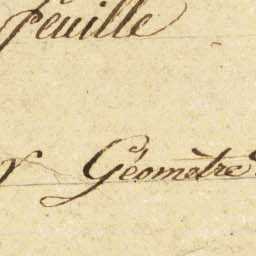 feuille
Géomètre